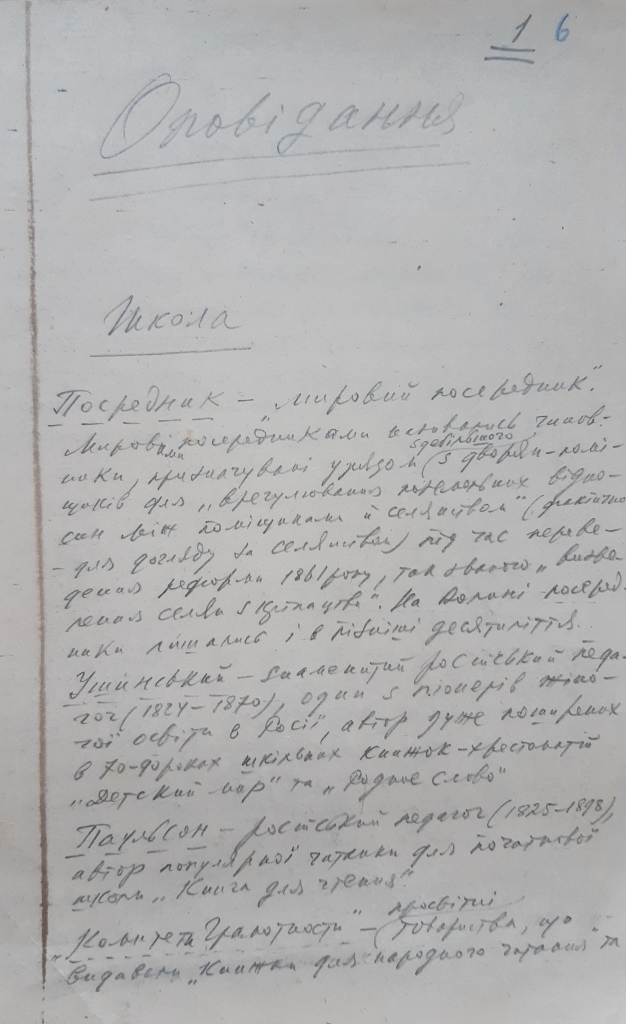 1 6
Оповідання
Школа
Посредник – „мировий посередник".
Мировими посередниками називались чинов-
здебільшого
ники, призначувані урядом (з дворян-помі-
щиків для „врегулювання поземельних відно-
син між поміщиками й селянством" (фактично
– для догляду за селянством) під час переве-
дення реформи 1861 року, так званого „визво-
лення селян з кріпацтва". На Волині посеред-
ники лишались і в пізніші десятиліття.
Ушінський – знаменитий російський педа-
гог (1824–1870), один з піонерів жіно-
чої освіти в Росії, автор дуже поширених
в 70-
шкільних книжок-хрестоматій
„Детский мир" та „Родное слово"
Паульсон – російський педагог (1825–1898),
автор популярної читанки для початкової
школи „Книга для чтения".
просвітні
„Комитети Грамотности" – (товариства, що
видавали „Книжки для народного читання" та